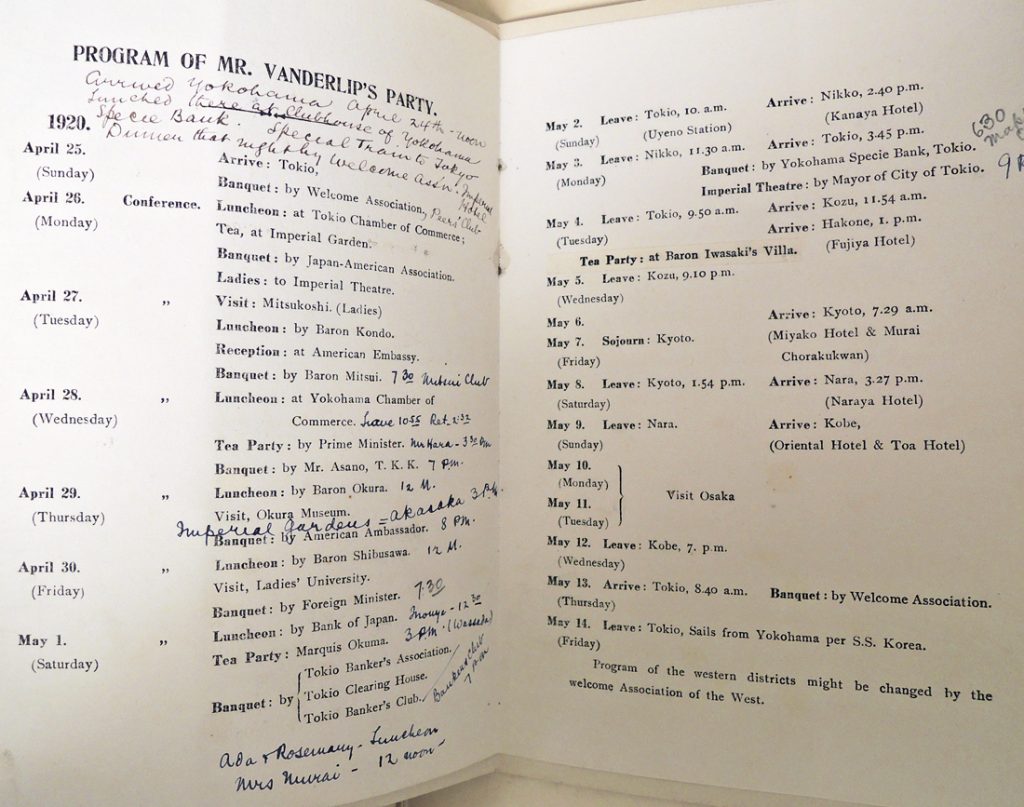 PROGRAM OF MR. VANDERLIP'S PARTY.
Arrived Yokohama April 24th - noon
Lunched there at Clubhouse of Yokohama
1920. Specie Bank. Special Train to Tokyo
Dinner that night by Welcome Ass'n. Imperial Hotel
April 25. Arrive: Tokio,
(Sunday) Banquet: by Welcome Association, Peers' Club
April 26 Conference. Luncheon: at Tokio Chamber of Commerce;
(Monday) Tea, at Imperial Garden.
Banquet: by Japan-American Association.
Ladies: to Imperial Theatre.
April 27. „ Visit: Mitsukoshi. (Ladies)
(Tuesday) Luncheon: by Baron Kondo.
Reception: at American Embassy.
Banquet: by Baron Mitsui. 7 30 Mitsui Club
April 28. „ Luncheon: at Yokohama Chamber of
(Wednesday) Commerce. Leave 10 55 Ret. 2:32
Tea Party: by Prime Minister. Mr Hara - 3 30 Pm
Banquet: by Mr. Asano, T. K. K. 7 PM.
April 29. „ Luncheon: by Baron Okura. 12 M.
(Thursday) Visit, Okura Museum.
Imperial Gardens = Akasaka 3 P.M.
Banquet: by American Ambassador. 8 PM.
April 30. „ Luncheon: by Baron Shibusawa. 12 M.
(Friday) Visit, Ladies' University.
Banquet: by Foreign Minister. 7.30
May 1. „ Luncheon: by Bank of Japan. Inouye - 12 30
(Saturday) Tea Party: Marquis Okuma. 3 PM. (Waseda)
Tokio Banker's Association.
Banquet: by Tokio Clearing House.
Tokio Banker's Club. Bankers Club 7 PM
Ada & Rosemary - Luncheon
Mrs Murai - 12 noon -
May 2. Leave: Tokio, 10. a.m. Arrive: Nikko, 2.40 p.m.
(Sunday) (Uyeno Station) (Kanaya Hotel)
May 3. Leave: Nikko, 11.30 a.m. Arrive: Tokio, 3.45 p.m.
(Monday) Banquet: by Yokohama Specie Bank, Tokio. 630
Imperial Theatre: by Mayor of City of Tokio. 9
May 4. Leave: Tokio, 9.50 a.m. Arrive: Kozu, 11.54 a.m.
(Tuesday) Arrive: Hakone, 1. p.m.
(Fujiya Hotel)
Tea Party: at Baron Iwasaki's Villa.
May 5. Leave: Kozu, 9.10 p.m.
(Wednesday)
May 6. Arrive: Kyoto, 7.29 a.m.
May 7. Sojourn: Kyoto. (Miyako Hotel & Murai
(Friday) Chorakukwan)
May 8. Leave: Kyoto, 1.54 p.m. Arrive: Nara, 3.27 p.m.
(Saturday) (Naraya Hotel)
May 9. Leave: Nara. Arrive: Kobe,
(Sunday) (Oriental Hotel & Toa Hotel)
May 10.
(Monday)
Visit Osaka
May 11.
(Tuesday)
May 12. Leave: Kobe, 7. p.m.
(Wednesday)
May 13. Arrive: Tokio, 8.40 a.m. Banquet: by Welcome Association.
(Thursday)
May 14. Leave: Tokio, Sails from Yokohama per S.S. Korea.
(Friday)
Program of the western districts might be changed by the
welcome Association of the West.